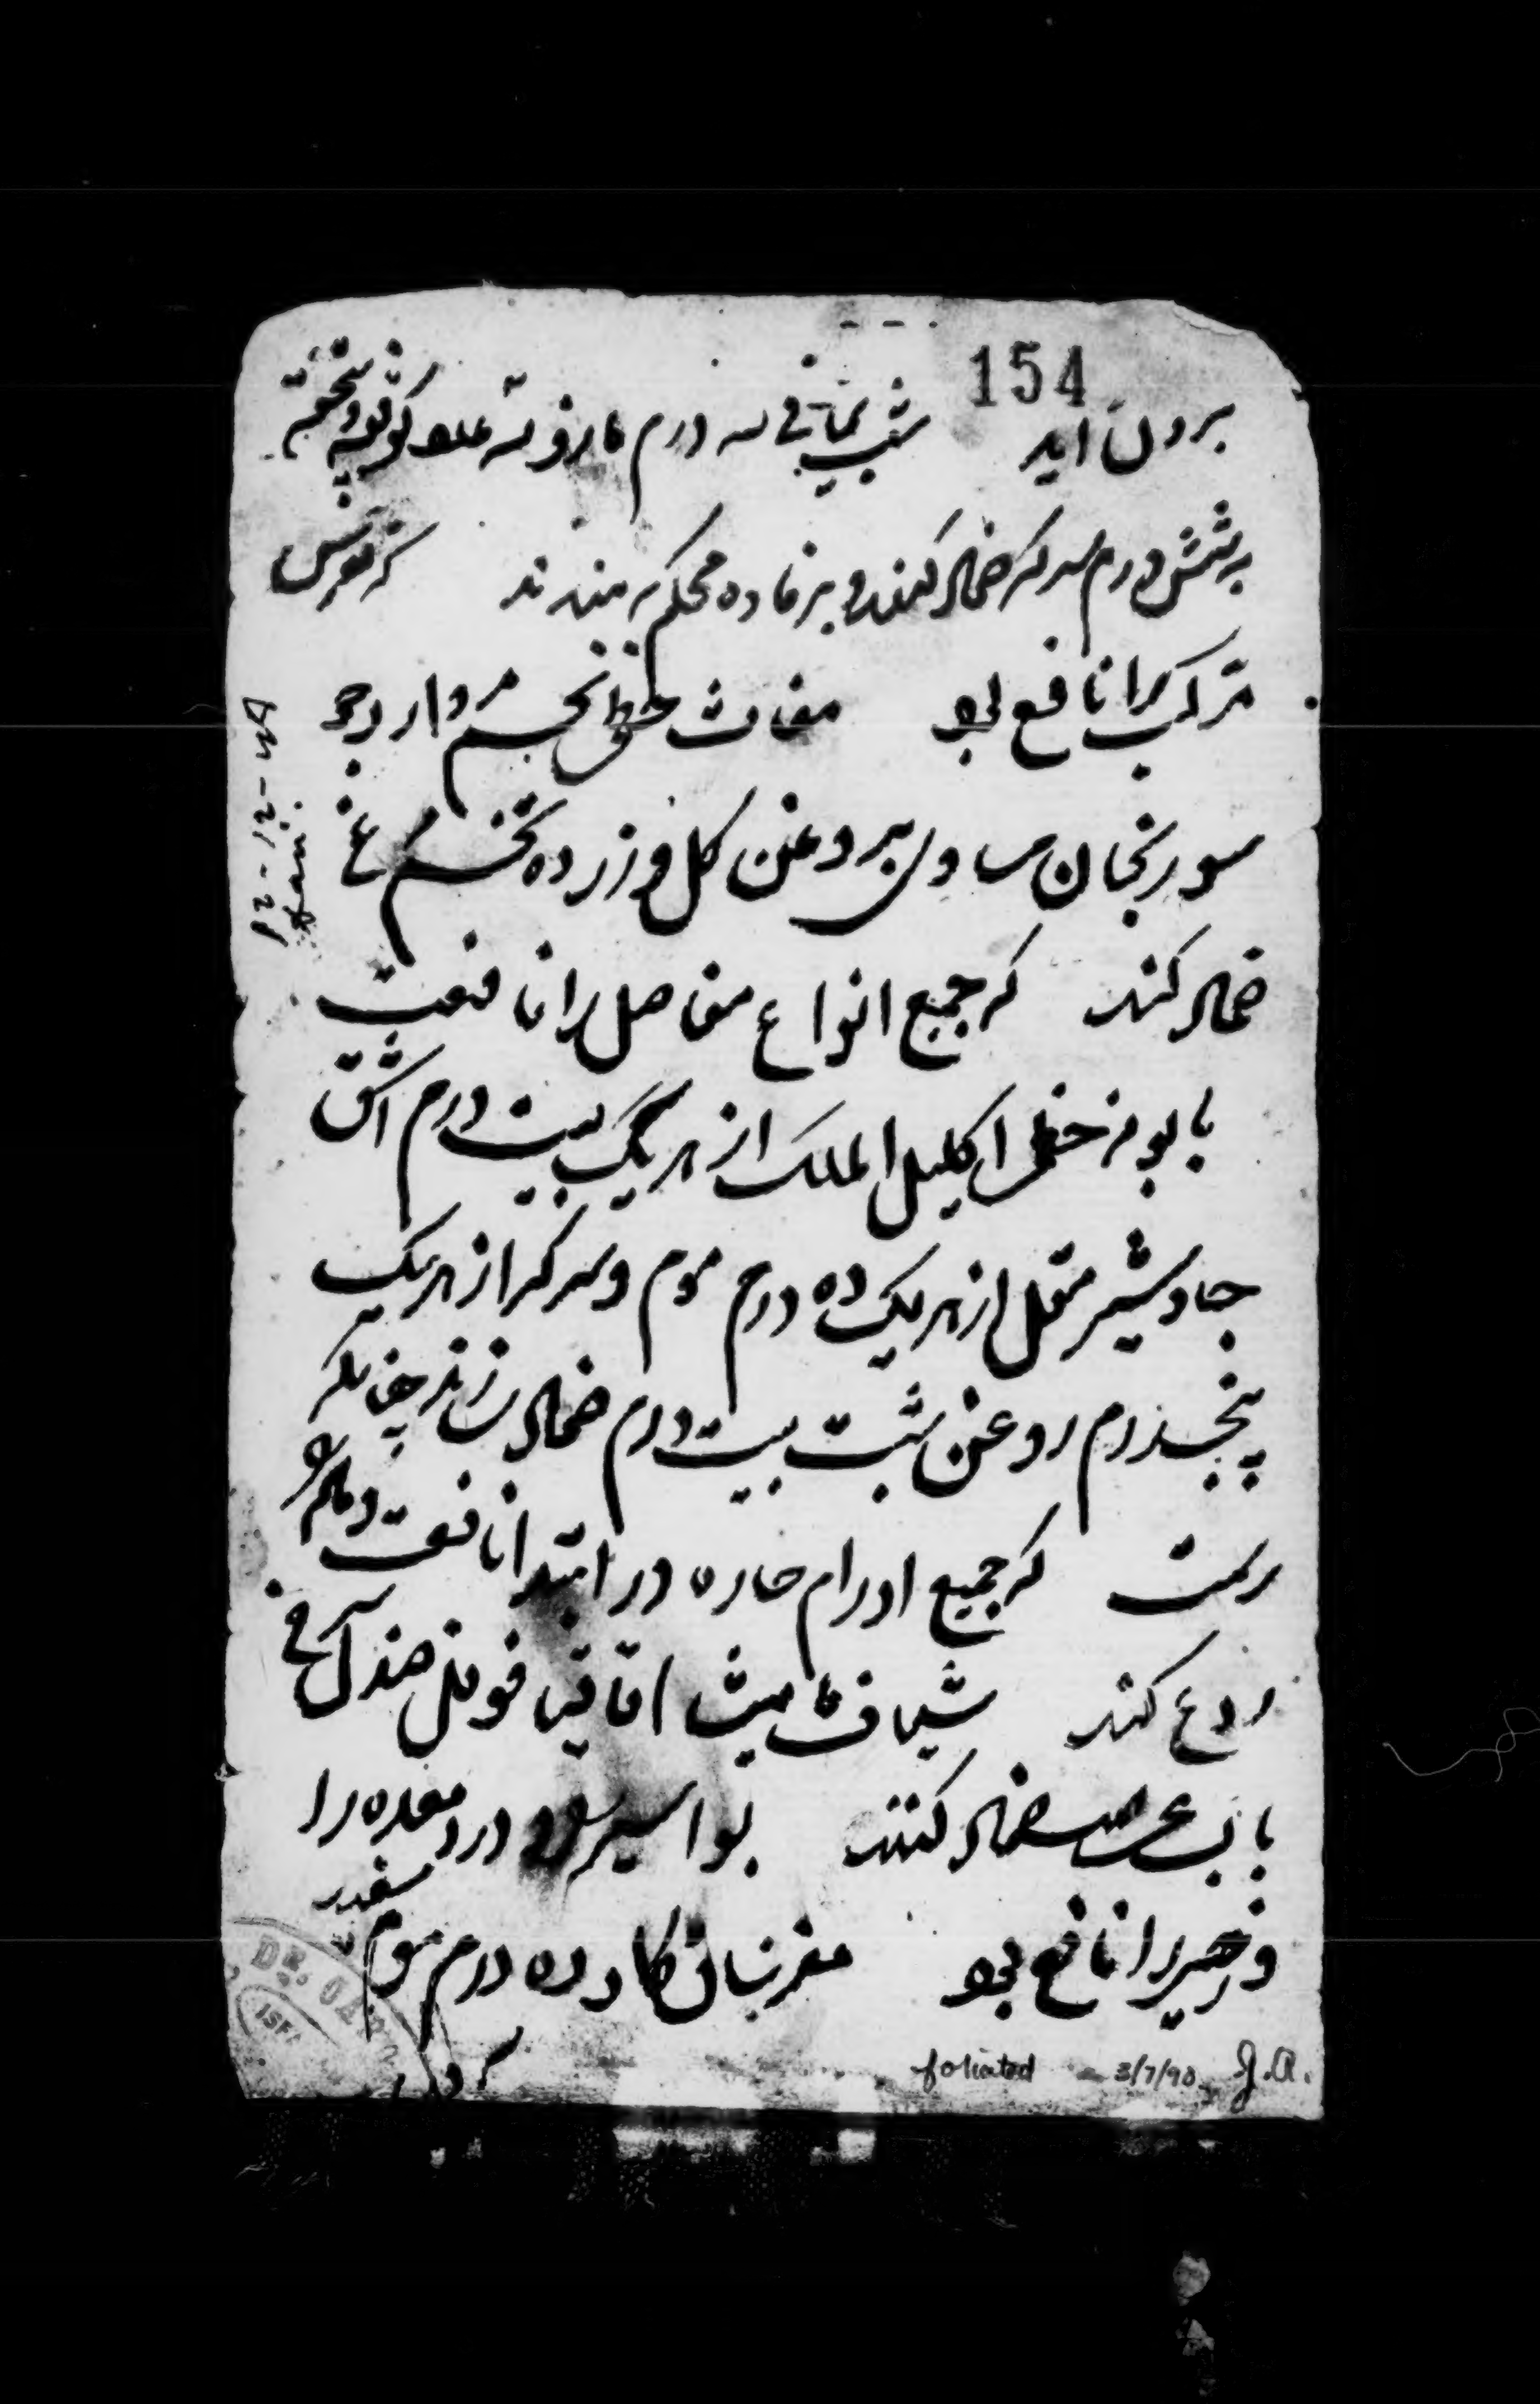 154
برون اید شب یمانی سه درم مازو سه عدد کوفته و پخته
بشش درم سرکه ضماد کنند و برفاده محکم بندند که نقرس
مرکب را نافع بود مغاث خطمی تخم مرو ارد جو
سورنجان مساوی بروغن کل و زرده تخم مرغ
ضماد کنند که جمیع انواع مفاصل را نافعست
بابونه خطمی اکلیل الملک از هریک بیست درم اشق
جاوشیر مقل از هریک ده درم موم و سرکه از هریک
پنجدرم روغن شبت بیست درم ضماد سازند چنانکه
رسمست که جمیع اورام حاره در ابتدا نافعست و ماده
ردع کند شیاف مامیثا اقاقیا فوفل صندل سرخ
باب ضماد کنند بواسیر و درد مقعده را
و زحیر را نافع بود مغز ساق کاو ده درم موم سفید
12-12-
foliated 3/7/90 J.A.
DR.